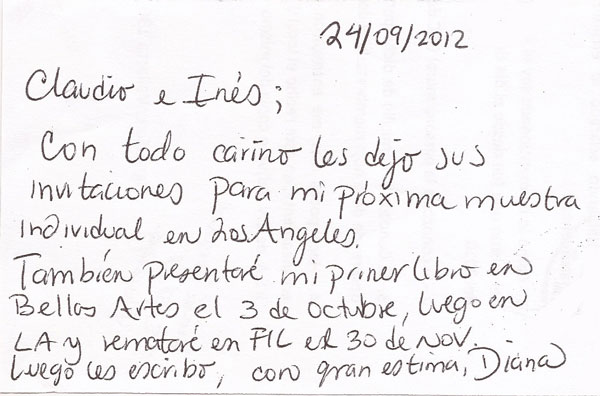 24/09/2012
Claudio e Inés;
Con todo cariño les dejo sus
invitaciones para mi próxima muestra
individual en Los Angeles.
También presentaré mi primer libro en
Bellas Artes el 3 de octubre, luego en
LA y remataré en FIL el 30 de Nov.
Luego les escribo, con gran estima, Diana